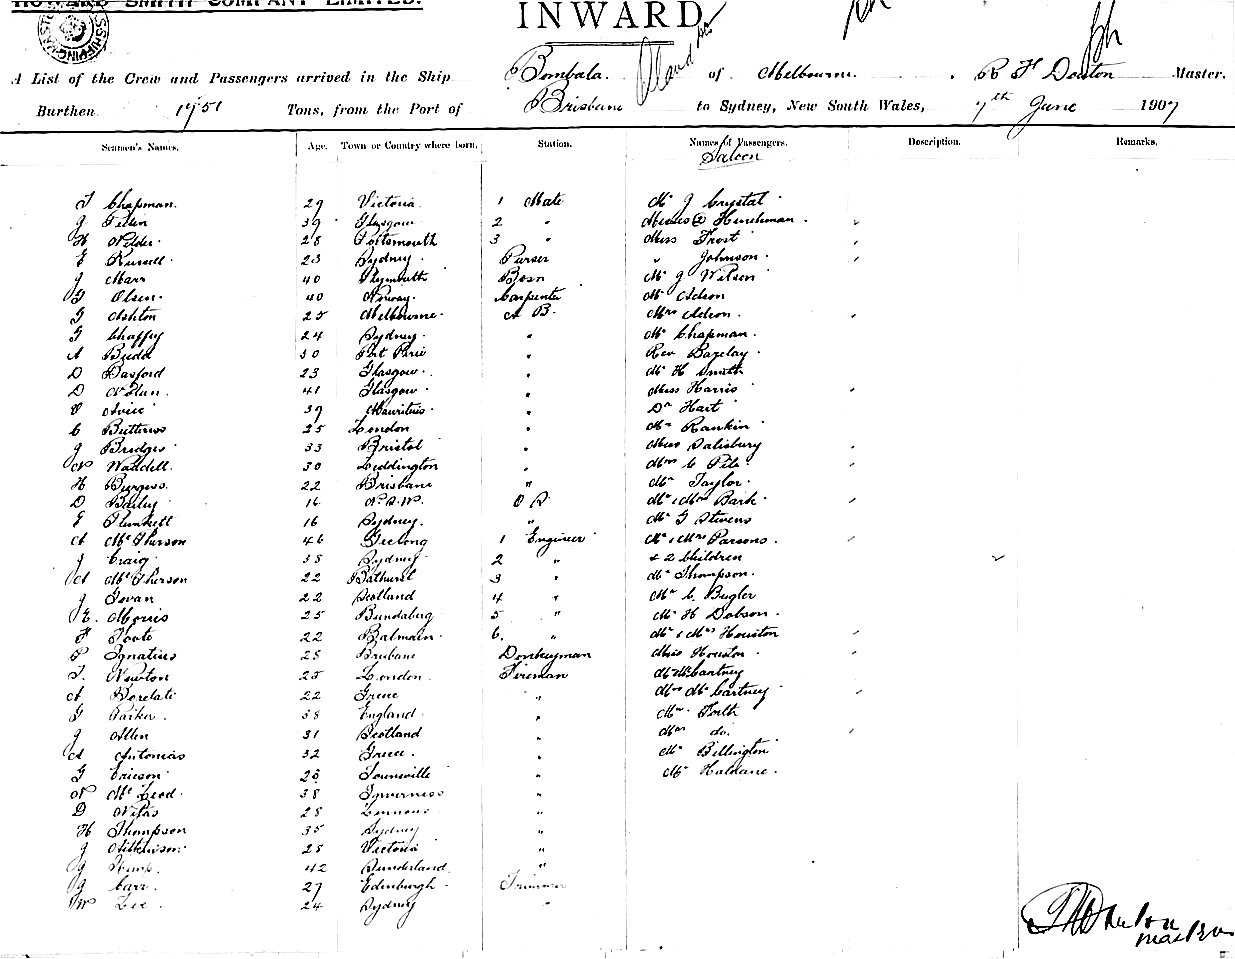 HOWARD SMITH COMPANY LIMITED.
INWARD
A List of the Crew and Passengers arrived in the Ship Bombala. of Melbourne. R F Master.
Burthen 1751 Tons, from the Port of Brisbane to Sydney, New South Wales, 7th June 1907
Seamen's Names. Age. Town or Country where born. Station. Names of Passengers. Description. Remarks.
Saloon
Chapman. 29 Victoria 1 Mate Mr J Crystal
39 Glasgow 2 " Hinchman
H 28 Portsmouth 3 " Miss Frost
E Russell 23 Sydney Purser " Johnson
J Marr 40 Plymouth Bosn Mr J Wilson
G Olsen 40 Norway. Carpenter Mr
G Ashton 25 Melbourne. A B. Mrs
G Chaffey 24 Sydney " Mr Chapman.
A Budd 30 Port Pirie " Rev Barclay
D Basford 23 Glasgow " Mr H Smith
D 41 Glasgow " Miss Harris
39 Mauritius " Dr Hart
C 25 London " Mr Rankin
J Bridges 33 Bristol " Miss Salisbury
Waddell. 30 Leddington " Mrs C
H Burgess. 22 Brisbane " Mr Taylor
D Bailey 16 N.S.W. O S Mr & Mrs Bark
E Plunkett 16 Sydney. " Mr G Stevens
A McPherson 46 Geelong 1 Engineer Mr & Mrs Parsons.
J Craig 38 Sydney 2 " & 2 Children
A McPherson 22 Bathurst 3 " Mr Thompson.
J Govan 22 Scotland 4 " Mr C. Bugler
E. Morris 25 Bundaberg 5 " Mr H Dobson.
F Foote 22 Balmain 6. " Mr & Mrs Houston
P Ignatius 28 Brisbane Donkeyman Miss Houston
T. Newton 25 London Fireman Mr McCartney
A 22 Greece " Mrs McCartney
G Parker 38 England " Mr Forth
J Allen 31 Scotland " Mrs do.
A Antonias 32 Greece " Mr Billington
G Ericson 28 Townsville " Mr Haldane.
N McLeod 38 Inverness "
D 28 "
H Thompson 35 Sydney "
J 28 Victoria "
J 42 Sunderland "
J Carr. 27 Edinburgh Trimmer
W Lee 24 Sydney "
Master